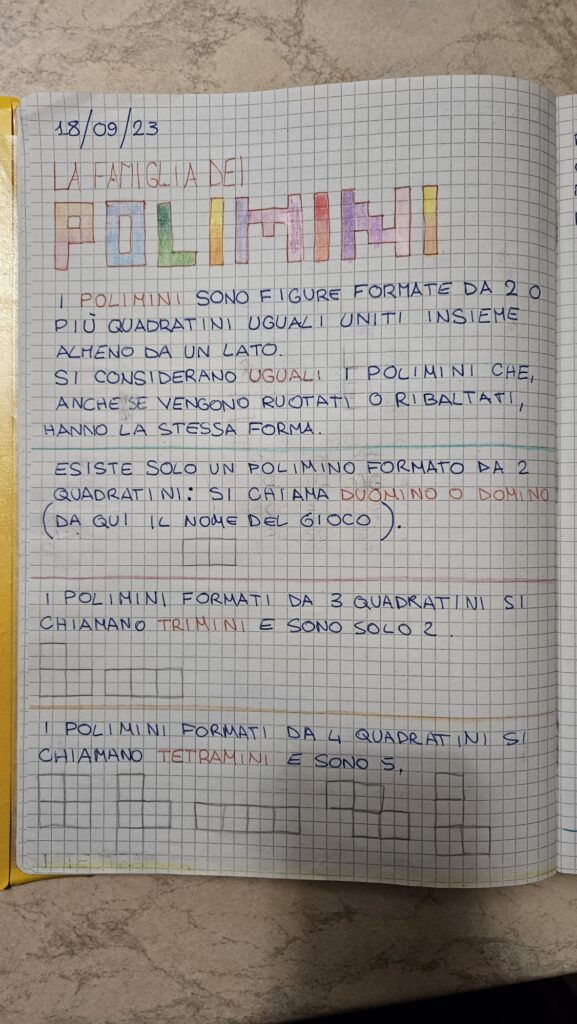 18/09/23
LA FAMIGLIA DEI
POLIMINI
I POLIMINI SONO FIGURE FORMATE DA 2 O
PIÙ QUADRATINI UGUALI UNITI INSIEME
ALMENO DA UN LATO.
SI CONSIDERANO UGUALI I POLIMINI CHE,
ANCHE SE VENGONO RUOTATI O RIBALTATI,
HANNO LA STESSA FORMA.
ESISTE SOLO UN POLIMINO FORMATO DA 2
QUADRATINI: SI CHIAMA DUOMINO O DOMINO
(DA QUI IL NOME DEL GIOCO).
I POLIMINI FORMATI DA 3 QUADRATINI SI
CHIAMANO TRIMINI E SONO SOLO 2.
I POLIMINI FORMATI DA 4 QUADRATINI SI
CHIAMANO TETRAMINI E SONO 5.